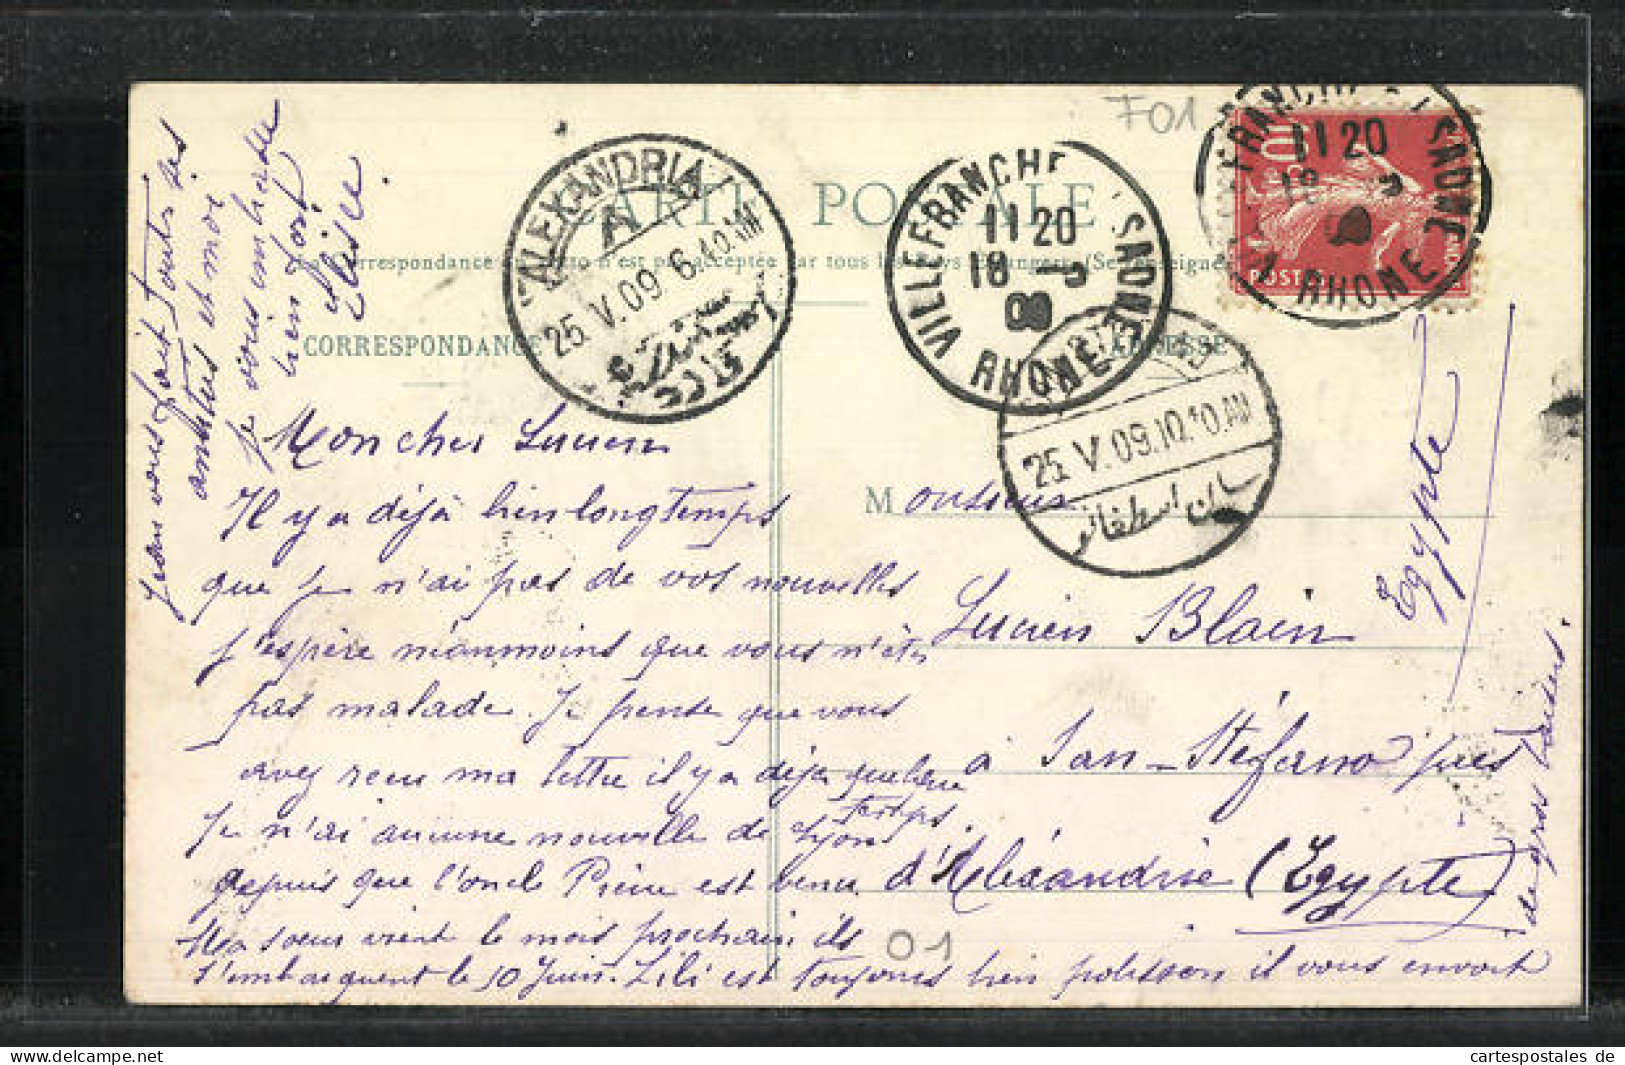 F01
CARTE POSTALE
La Correspondance au recto n'est pas acceptée par tous les pays étrangers (Se renseigner
CORRESPONDANCE
ADRESSE
ALEXANDRIA
A
25. V. 09 6.40 AM
VILLEFRANCHE S SAONE
11 20
18 -5
09
RHONE
VILLEFRANCHE S SAONE
11 20
18 5
RHONE
10
POSTES
25. V. 09. 10.10 AM
سان استفانو
Mon cher Lucien
Il y a déjà bien longtemps
que je n'ai pas de vos nouvelles
j'espère néanmoins que vous n'êtes
pas malade. Je pense que vous
avez reçu ma lettre il y a déjà quelque
temps.
Je n'ai aucune nouvelle de Lyon
depuis que l'oncle Pierre est venu
Ma sœur vient le mois prochain ils
s'embarquent le 10 Juin. Lili est toujours bien polisson il vous envoit
de gros baisers.
Jean vous fait toutes ses
amitiés et moi
je vous embrasse
bien fort
Elise
Monsieur
Lucien Blain
à San-Stéfano près
d'Alexandrie (Egypte)
Egypte
01
cartespostales de